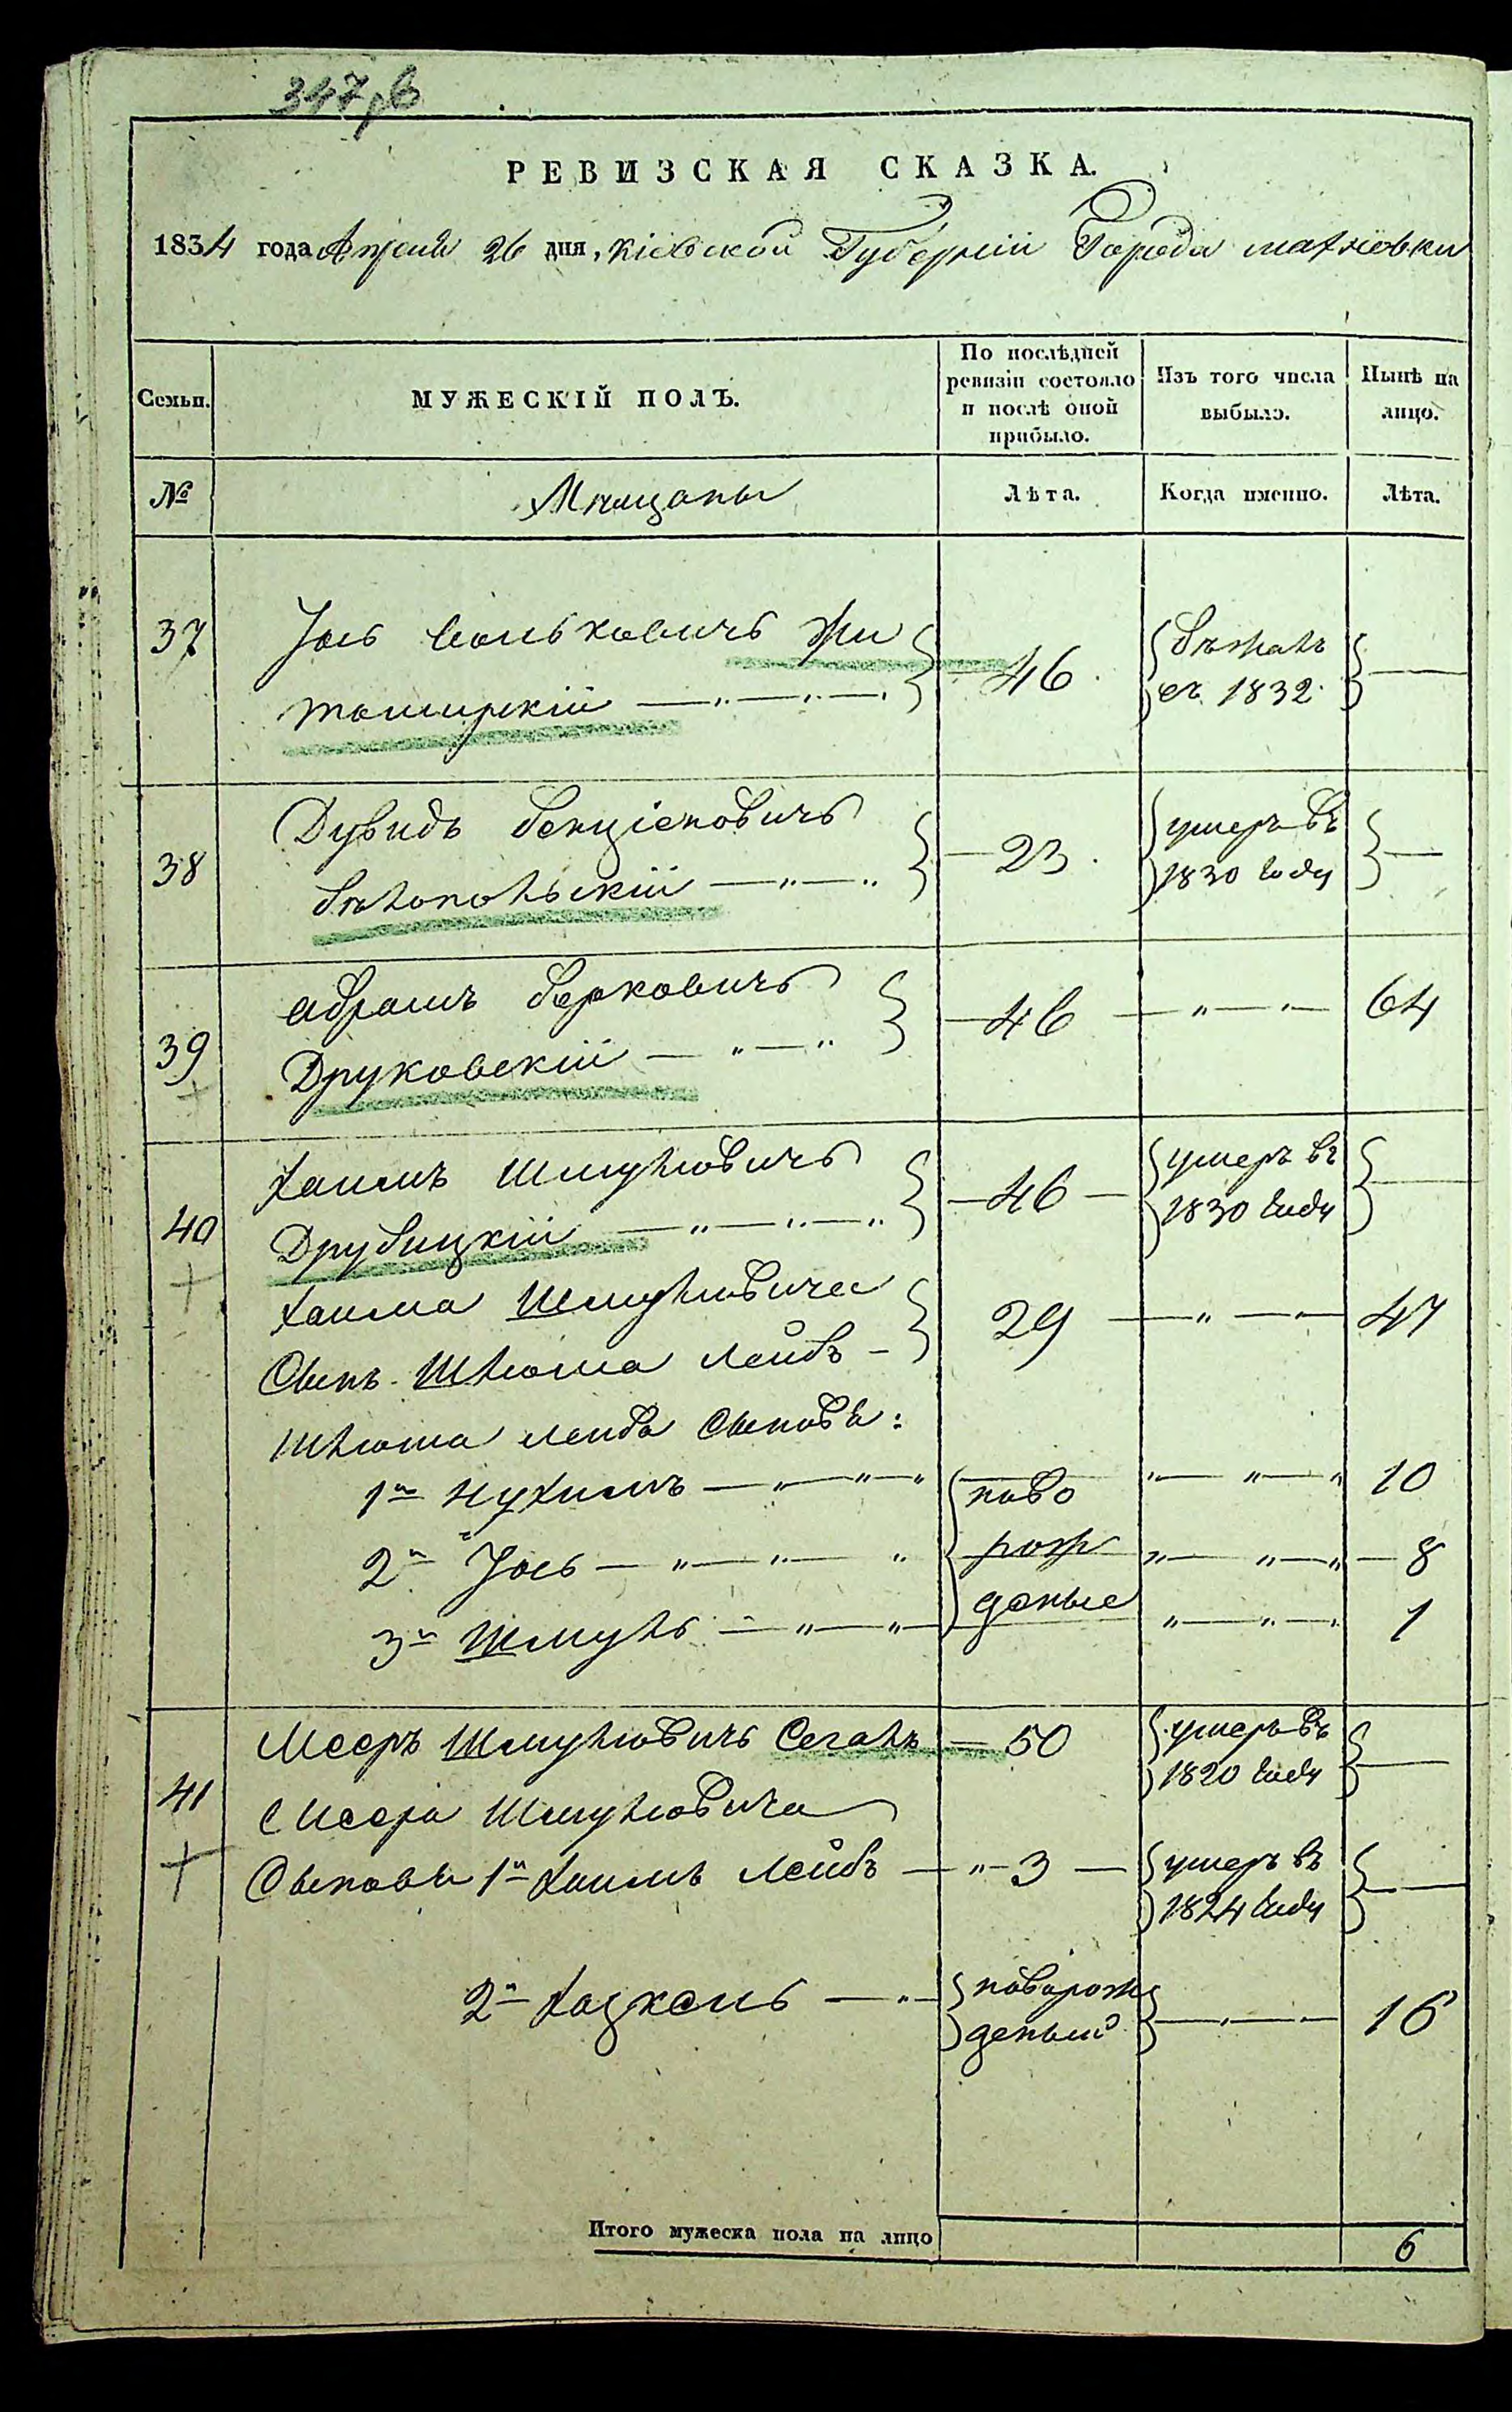 РЕВИЗСКАЯ СКАЗКА.
1834 года Апреля 26 дня, Кіевской Губерніи Города Махновки
Семьи. МУЖЕСКІЙ ПОЛЪ. По послѣдней ревизіи состояло и послѣ оной прибыло. Изъ того числа выбыло. Нынѣ на лицо.
№ Мещаны Лѣта. Когда именно. Лѣта.
37 Іось Волковичъ Жи 46 бѣжалъ
томирскій въ 1832
38 Дувидъ Бенціеновичъ 23 умеръ въ
бѣлопольскій 1830 году
39 Абрамъ Берковичъ 46 64
Друковскій
40 Хаимъ Шмулювичъ 46 умеръ въ
Друбицкій 1830 году
Хаима Шмулювича
Сынъ Шлюма Лейбъ 29 47
Шлюма Лейба Сыновья:
1й Нухимъ ново 10
2й Іось рож 8
3й Шмуль деные 1
41 Мееръ Шмулювичъ Сегалъ 50 умеръ въ
1820 году
Меера Шмулювича
Сыновья 1й Хаимъ Лейбъ 3 умеръ въ
1824 году
2й Хацкель новорож 16
деный
Итого мужеска пола на лицо 6